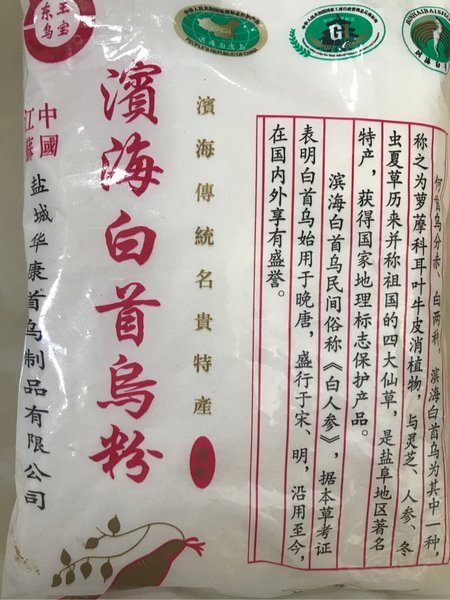 东王
乌宝
中華人民共和國地理標志保護產品
PEOPLE'S REPUBLIC OF CHINA
G
BINHAIBAISHOU
濱海白首烏粉
濱海傳統名貴特產
中國
江蘇
盐城华康首乌制品有限公司
何首乌分赤、白两种，滨海白首乌为其中一种，
称之为萝藦科耳叶牛皮消植物，与灵芝、人参、冬
虫夏草历来并称祖国的四大仙草，是盐阜地区著名
特产，获得国家地理标志保护产品。
滨海白首乌民间俗称《白人参》，据本草考证
表明白首乌始用于晚唐，盛行于宋、明，沿用至今，
在国内外享有盛誉。